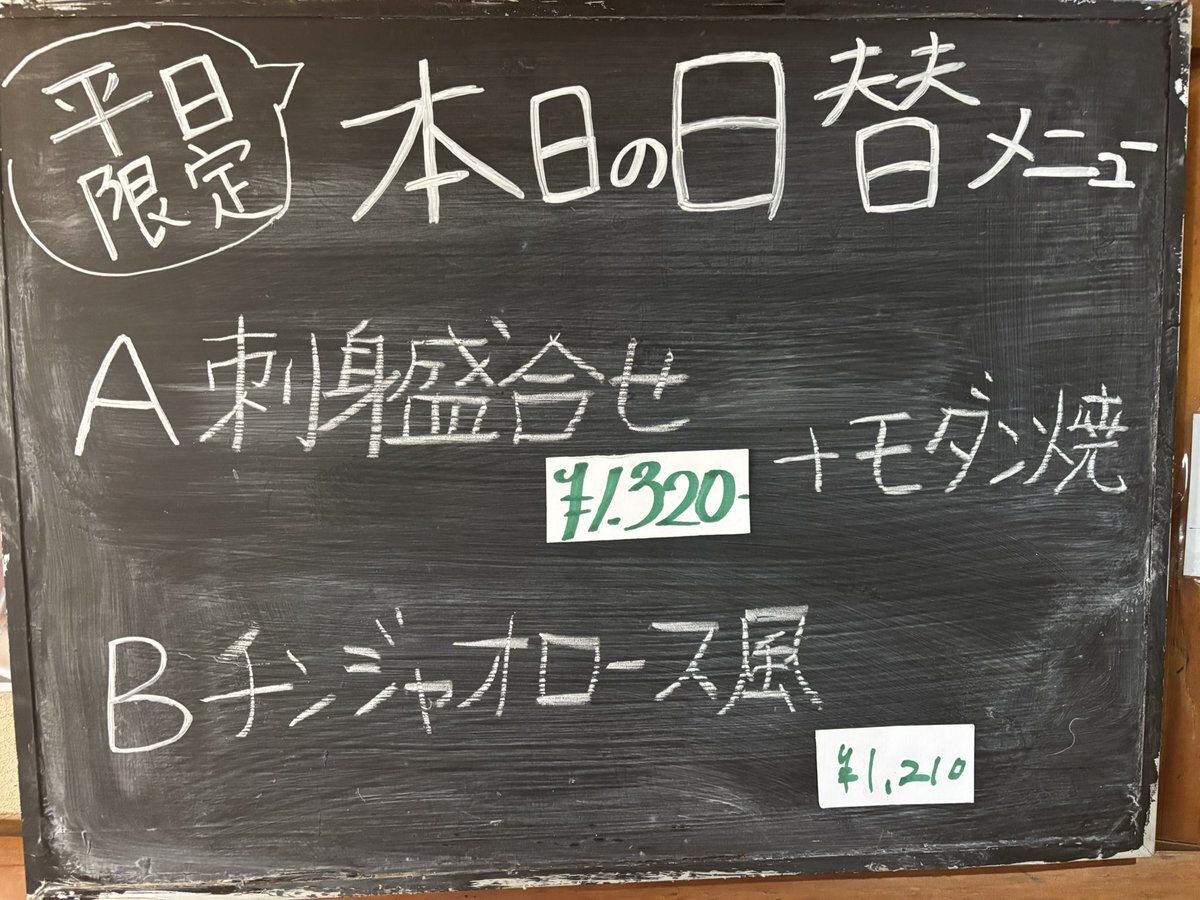 平日
限定
本日の日替メニュー
A 刺身盛合せ
+モダン焼
¥1.320-
B チンジャオロース風
¥1,210